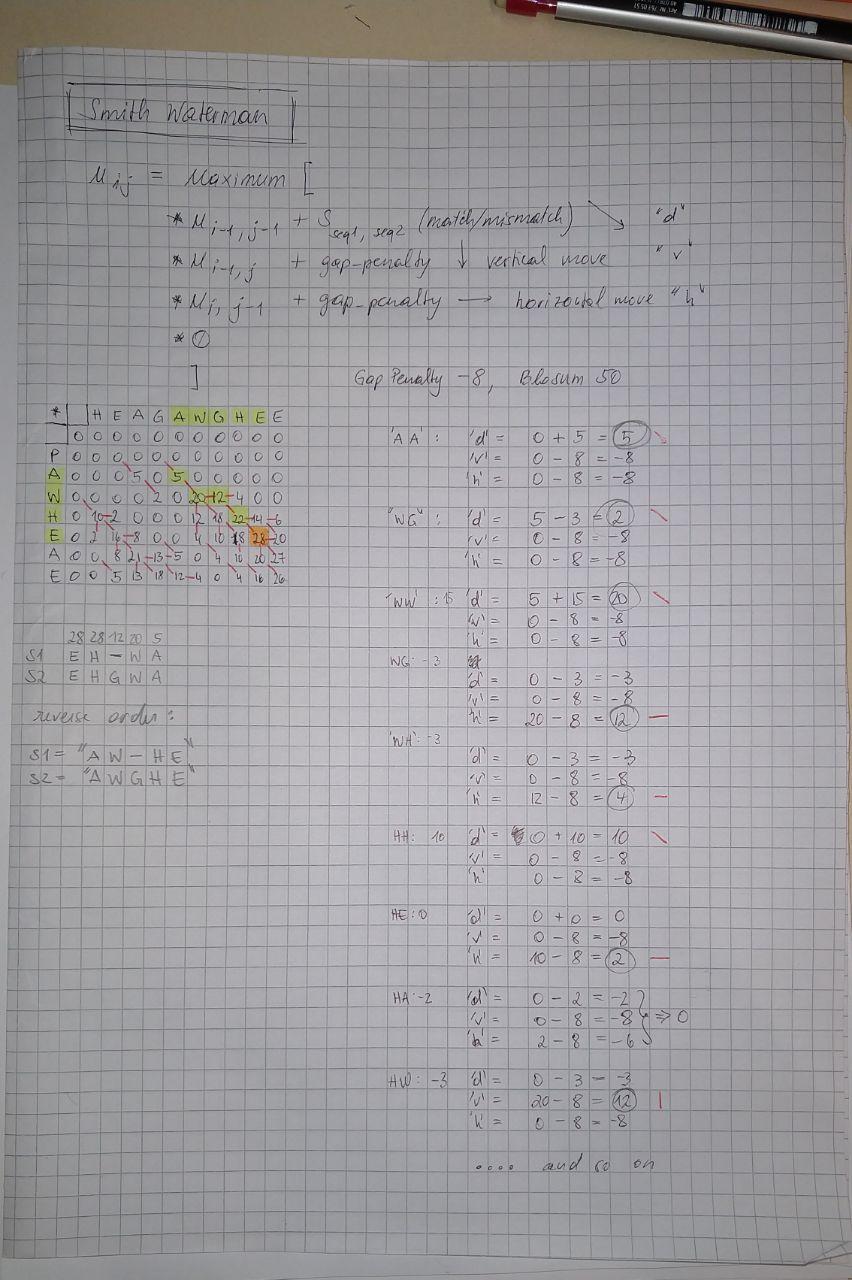 Smith Waterman
M ij = Maximum [
* M i-1, j-1 + S seq1, seq2 (match/mismatch) ↘ "d"
* M i-1, j + gap-penalty ↓ vertical move "v"
* M i, j-1 + gap-penalty → horizontal move "h"
* 0
]
Gap Penalty -8, Blosum 50
* H E A G A W G H E E
0 0 0 0 0 0 0 0 0 0 0
P 0 0 0 0 0 0 0 0 0 0 0
A 0 0 0 5 0 5 0 0 0 0 0
W 0 0 0 0 2 0 20 12 4 0 0
H 0 10 2 0 0 0 12 18 22 14 6
E 0 2 16 8 0 0 4 10 18 28 20
A 0 0 8 21 13 5 0 4 10 20 27
E 0 0 5 13 18 12 4 0 4 16 26
28 28 12 20 5
S1 E H - W A
S2 E H G W A
reverse order:
S1 = "A W - H E"
S2 = "A W G H E"
'AA': 'd' = 0 + 5 = 5
'v' = 0 - 8 = -8
'h' = 0 - 8 = -8
"WG": 'd' = 5 - 3 = 2
'v' = 0 - 8 = -8
'h' = 0 - 8 = -8
'WW': 15 'd' = 5 + 15 = 20
'v' = 0 - 8 = -8
'h' = 0 - 8 = -8
WG: -3
'd' = 0 - 3 = -3
'v' = 0 - 8 = -8
'h' = 20 - 8 = 12 —
'WH': -3
'd' = 0 - 3 = -3
'v' = 0 - 8 = -8
'h' = 12 - 8 = 4 —
HH: 10 'd' = 0 + 10 = 10
'v' = 0 - 8 = -8
'h' 0 - 8 = -8
HE: 0 'd' = 0 + 0 = 0
'v' = 0 - 8 = -8
'h' = 10 - 8 = 2 —
HA: -2 'd' = 0 - 2 = -2
'v' = 0 - 8 = -8 } ⇒ 0
'h' = 2 - 8 = -6
HW: -3 'd' = 0 - 3 = -3
'v' = 20 - 8 = 12 |
'h' = 0 - 8 = -8
.... and so on